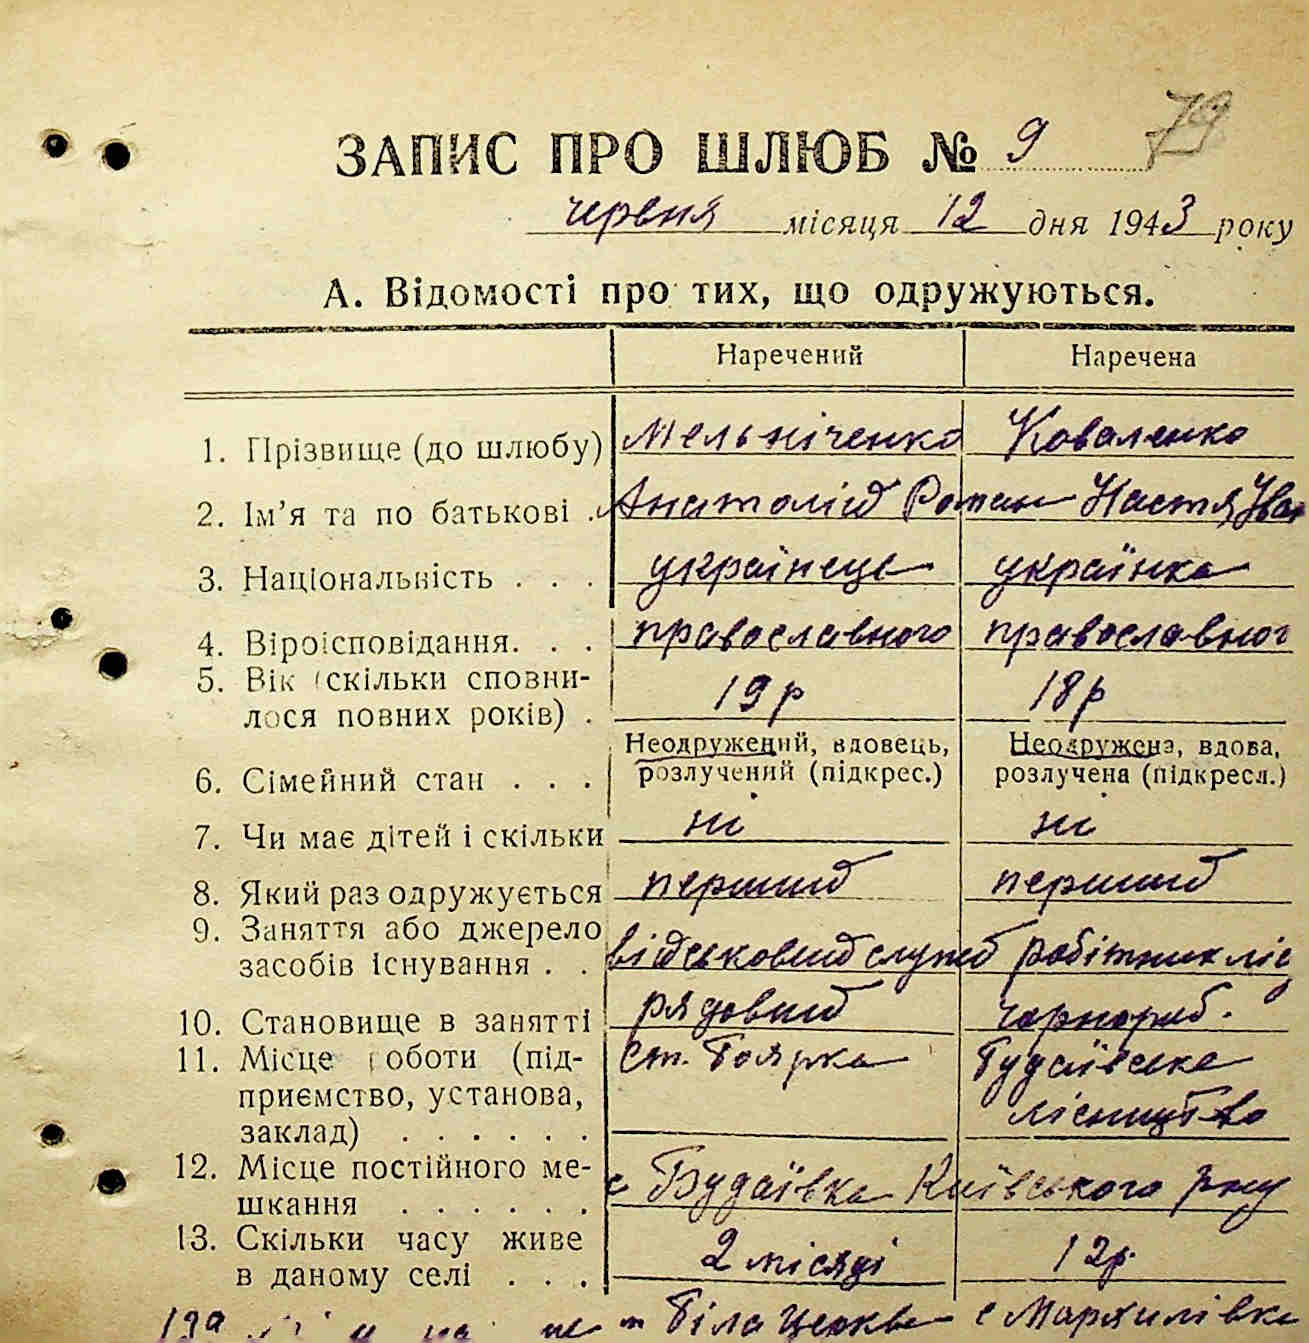 79
ЗАПИС ПРО ШЛЮБ № 9
червня місяця 12 дня 1943 року
А. Відомості про тих, що одружуються.
Наречений Наречена
1. Прізвище (до шлюбу) Мельніченко Коваленко
2. Ім'я та по батькові . Анатолій Роман Настя Іван
3. Національність . . . українець українка
4. Віроісповідання. . . православного православног
5. Вік (скільки сповни-
лося повних років) . 19 р 18 р
6. Сімейний стан . . . Неодружений, вдовець, Неодружена, вдова,
розлучений (підкрес.) розлучена (підкресл.)
7. Чи має дітей і скільки ні ні
8. Який раз одружується перший перший
9. Заняття або джерело
засобів існування . . військовий служб робітник ліс
10. Становище в занятті рядовий чорнороб.
11. Місце роботи (під- ст. Боярка Будаївське
приємство, установа, лісництво
заклад) . . . . . .
12. Місце постійного ме-
шкання . . . . . . с Будаївка Київського р-ну
13. Скільки часу живе
в даному селі . . . 2 місяці 12 р.
м Біла Церква с Мархилівка